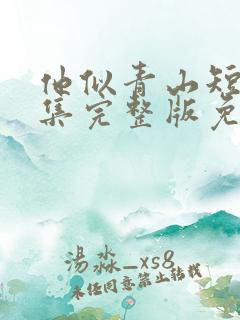 他似青山短
集完整版免
湯淼_xs8
未经同意禁止转载